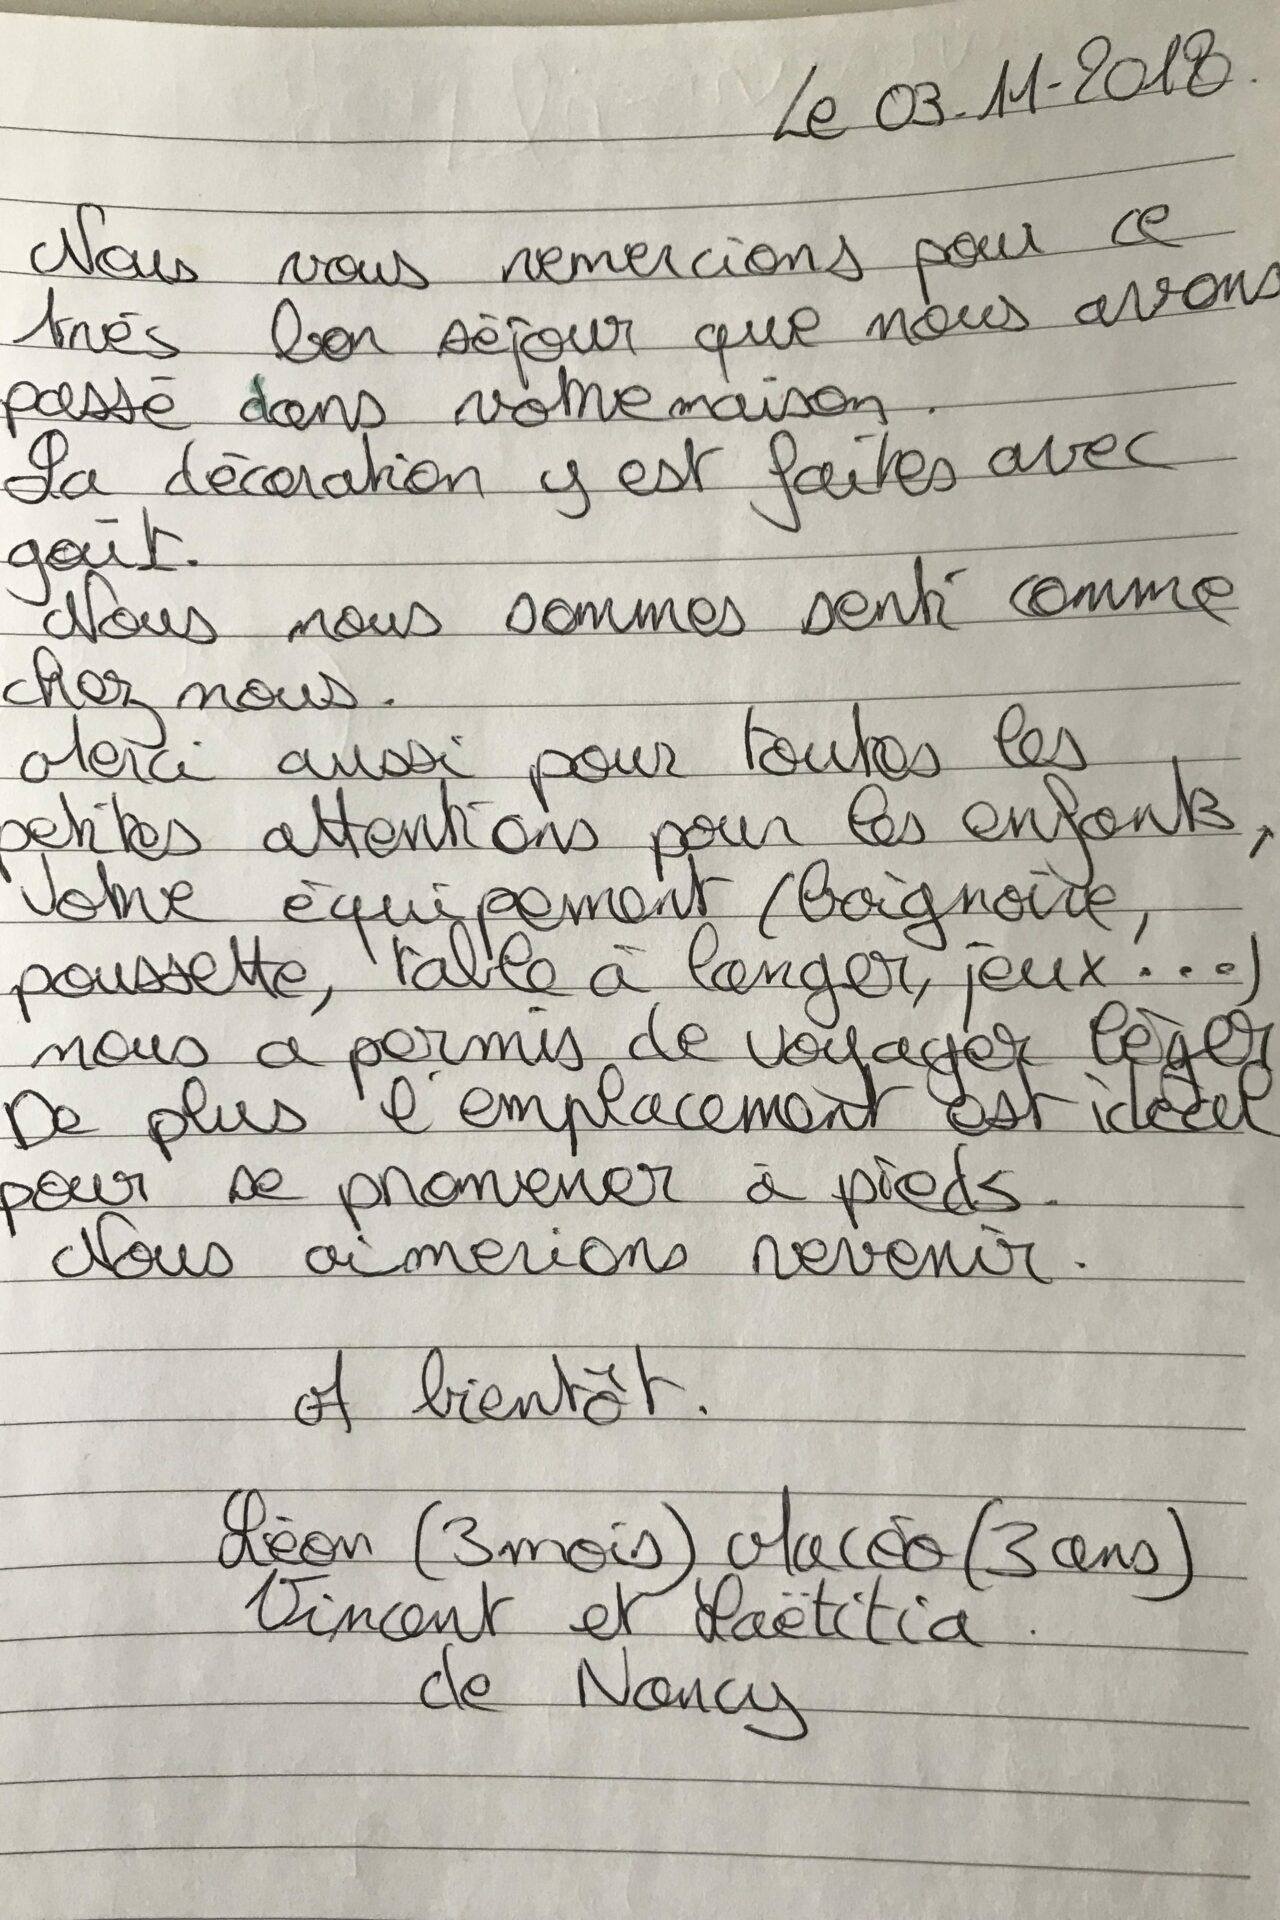 Le 03.11-2018.
Nous vous remercions pour ce
très bon séjour que nous avons
passé dans votre maison.
La décoration y est faites avec
goût.
Nous nous sommes senti comme
chez nous.
Merci aussi pour toutes les
petites attentions pour les enfants,
Votre équipement (baignoire,
poussette, table à langer, jeux....)
nous a permis de voyager léger
De plus l'emplacement est idéal
pour se promener à pieds.
Nous aimerions revenir.
A bientôt.
Léon (3 mois) Macéo (3 ans)
Vincent et Laëtitia.
de Nancy